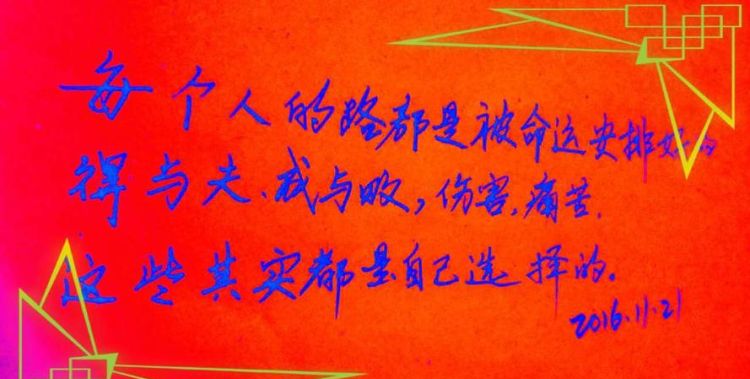 每个人的路都是被命运安排好的
得与失、成与败,伤害,痛苦.
这些其实都是自己选择的。
2016.11.21